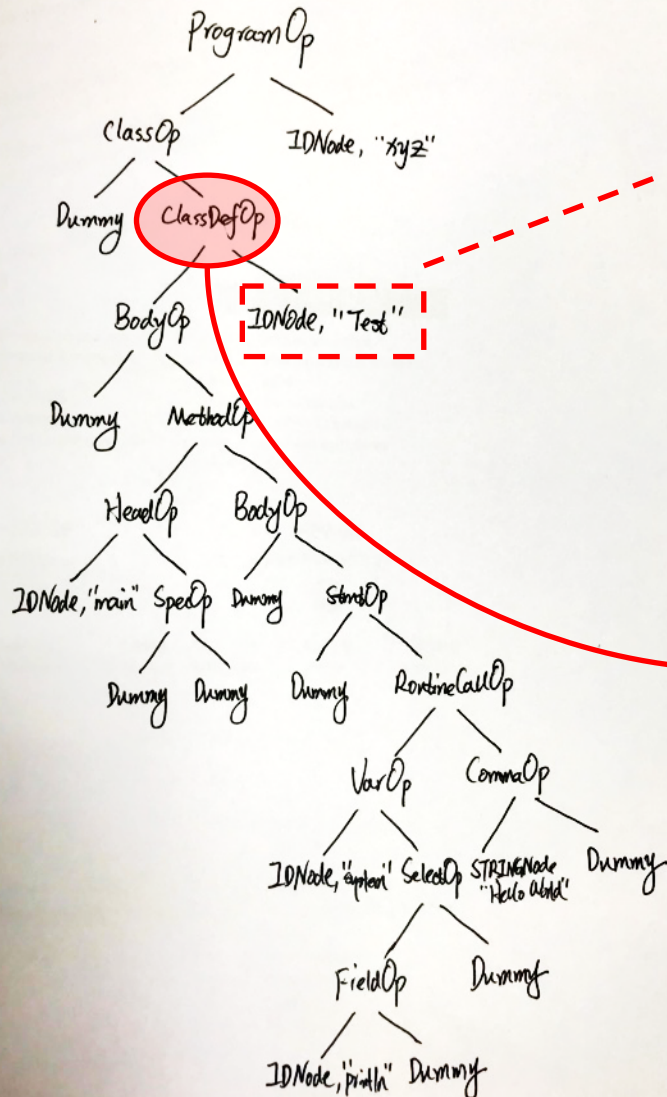 ProgramOp
ClassOp IDNode, "xyz"
Dummy ClassDefOp
BodyOp IDNode, "Test"
Dummy MethodOp
HeadOp BodyOp
IDNode, "main" SpecOp Dummy StmtOp
Dummy Dummy Dummy RoutineCallOp
VarOp CommaOp
IDNode, SelectOp STRINGNode Dummy
"Hello World"
FieldOp Dummy
IDNode, "println" Dummy